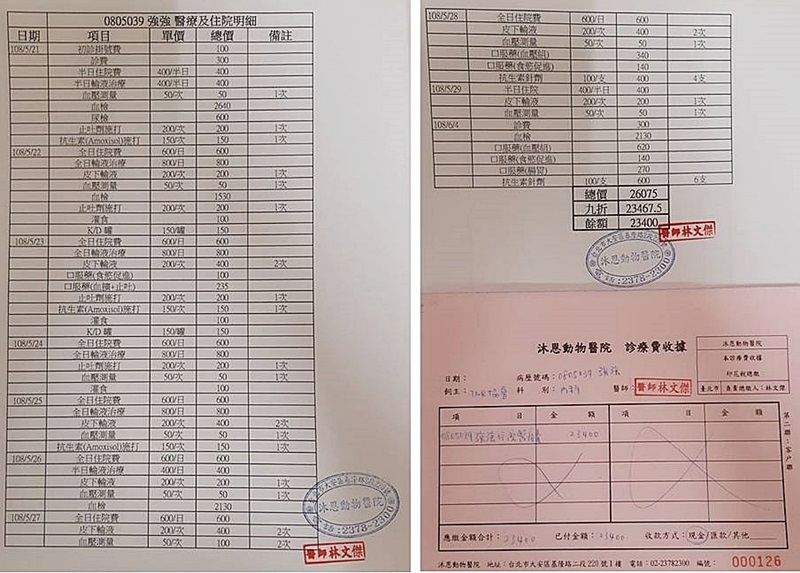 0805039 強強 醫療及住院明細
日期 項目 單價 總價 備註
108/5/21 初診掛號費 100
診費 300
半日住院費 400/半日 400
半日輸液治療 400/半日 400
血壓測量 50/次 50 1次
血檢 2640
尿檢 600
止吐劑施打 200/次 200 1次
抗生素(Amoxisol)施打 150/次 150 1次
108/5/22 全日住院費 600/日 600
全日輸液治療 800/日 800
皮下輸液 200/次 200 1次
血壓測量 50/次 50 1次
血檢 1530
止吐劑施打 200/次 200 1次
灌食 100
K/D 罐 150/罐 150
108/5/23 全日住院費 600/日 600
全日輸液治療 800/日 800
皮下輸液 200/次 400 2次
口服藥(食慾促進) 100
口服藥(血擴+止吐) 235
止吐劑施打 200/次 200 1次
抗生素(Amoxisol)施打 150/次 150 1次
灌食 100
K/D 罐 150/罐 150
108/5/24 全日住院費 600/日 600
全日輸液治療 800/日 800
止吐劑施打 200/次 200 1次
血壓測量 50/次 50 1次
灌食 100
108/5/25 全日住院費 600/日 600
全日輸液治療 800/日 800
皮下輸液 200/次 400 2次
血壓測量 50/次 50 1次
抗生素(Amoxisol)施打 150/次 150 1次
108/5/26 全日住院費 600/日 600
半日輸液治療 400/日 400
皮下輸液 200/次 200 1次
血壓測量 50/次 50 1次
血檢 2130
108/5/27 全日住院費 600/日 600
皮下輸液 200/次 400 2次
血壓測量 50/次 100 2次
沐恩動物醫院
2378-2300
醫師林文傑
108/5/28 全日住院費 600/日 600
皮下輸液 200/次 400 2次
血壓測量 50/次 50 1次
口服藥(血壓組) 340
口服藥(食慾促進) 140
抗生素針劑 100/支 400 4支
108/5/29 半日住院 400/半日 400
皮下輸液 200/次 200 1次
血壓測量 50/次 50 1次
108/6/4 診費 300
血檢 2130
口服藥(血壓組) 620
口服藥(食慾促進) 140
口服藥(腸胃) 270
抗生素針劑 100/支 600 6支
總價 26075
九折 23467.5
餘額 23400
醫師林文傑
台北市大安區基隆路二段220號
沐恩動物醫院
電話:2378-2300
沐恩動物醫院 診療費收據
沐恩動物醫院
本診療費收據
印花稅總繳
臺北市 負責總繳人:林文傑
日期: 病歷號碼:0805039 強強
飼主:TNR協會 科別:內科 醫師:醫師林文傑
項目 金額 項目 金額
0805039強強 23400
第二聯:客戶聯
應繳金額合計:23400 已付金額:23400 收款方式:現金/匯款/其他
沐恩動物醫院 地址:台北市大安區基隆路二段220號1樓 電話:02-23782300 編號: 000126